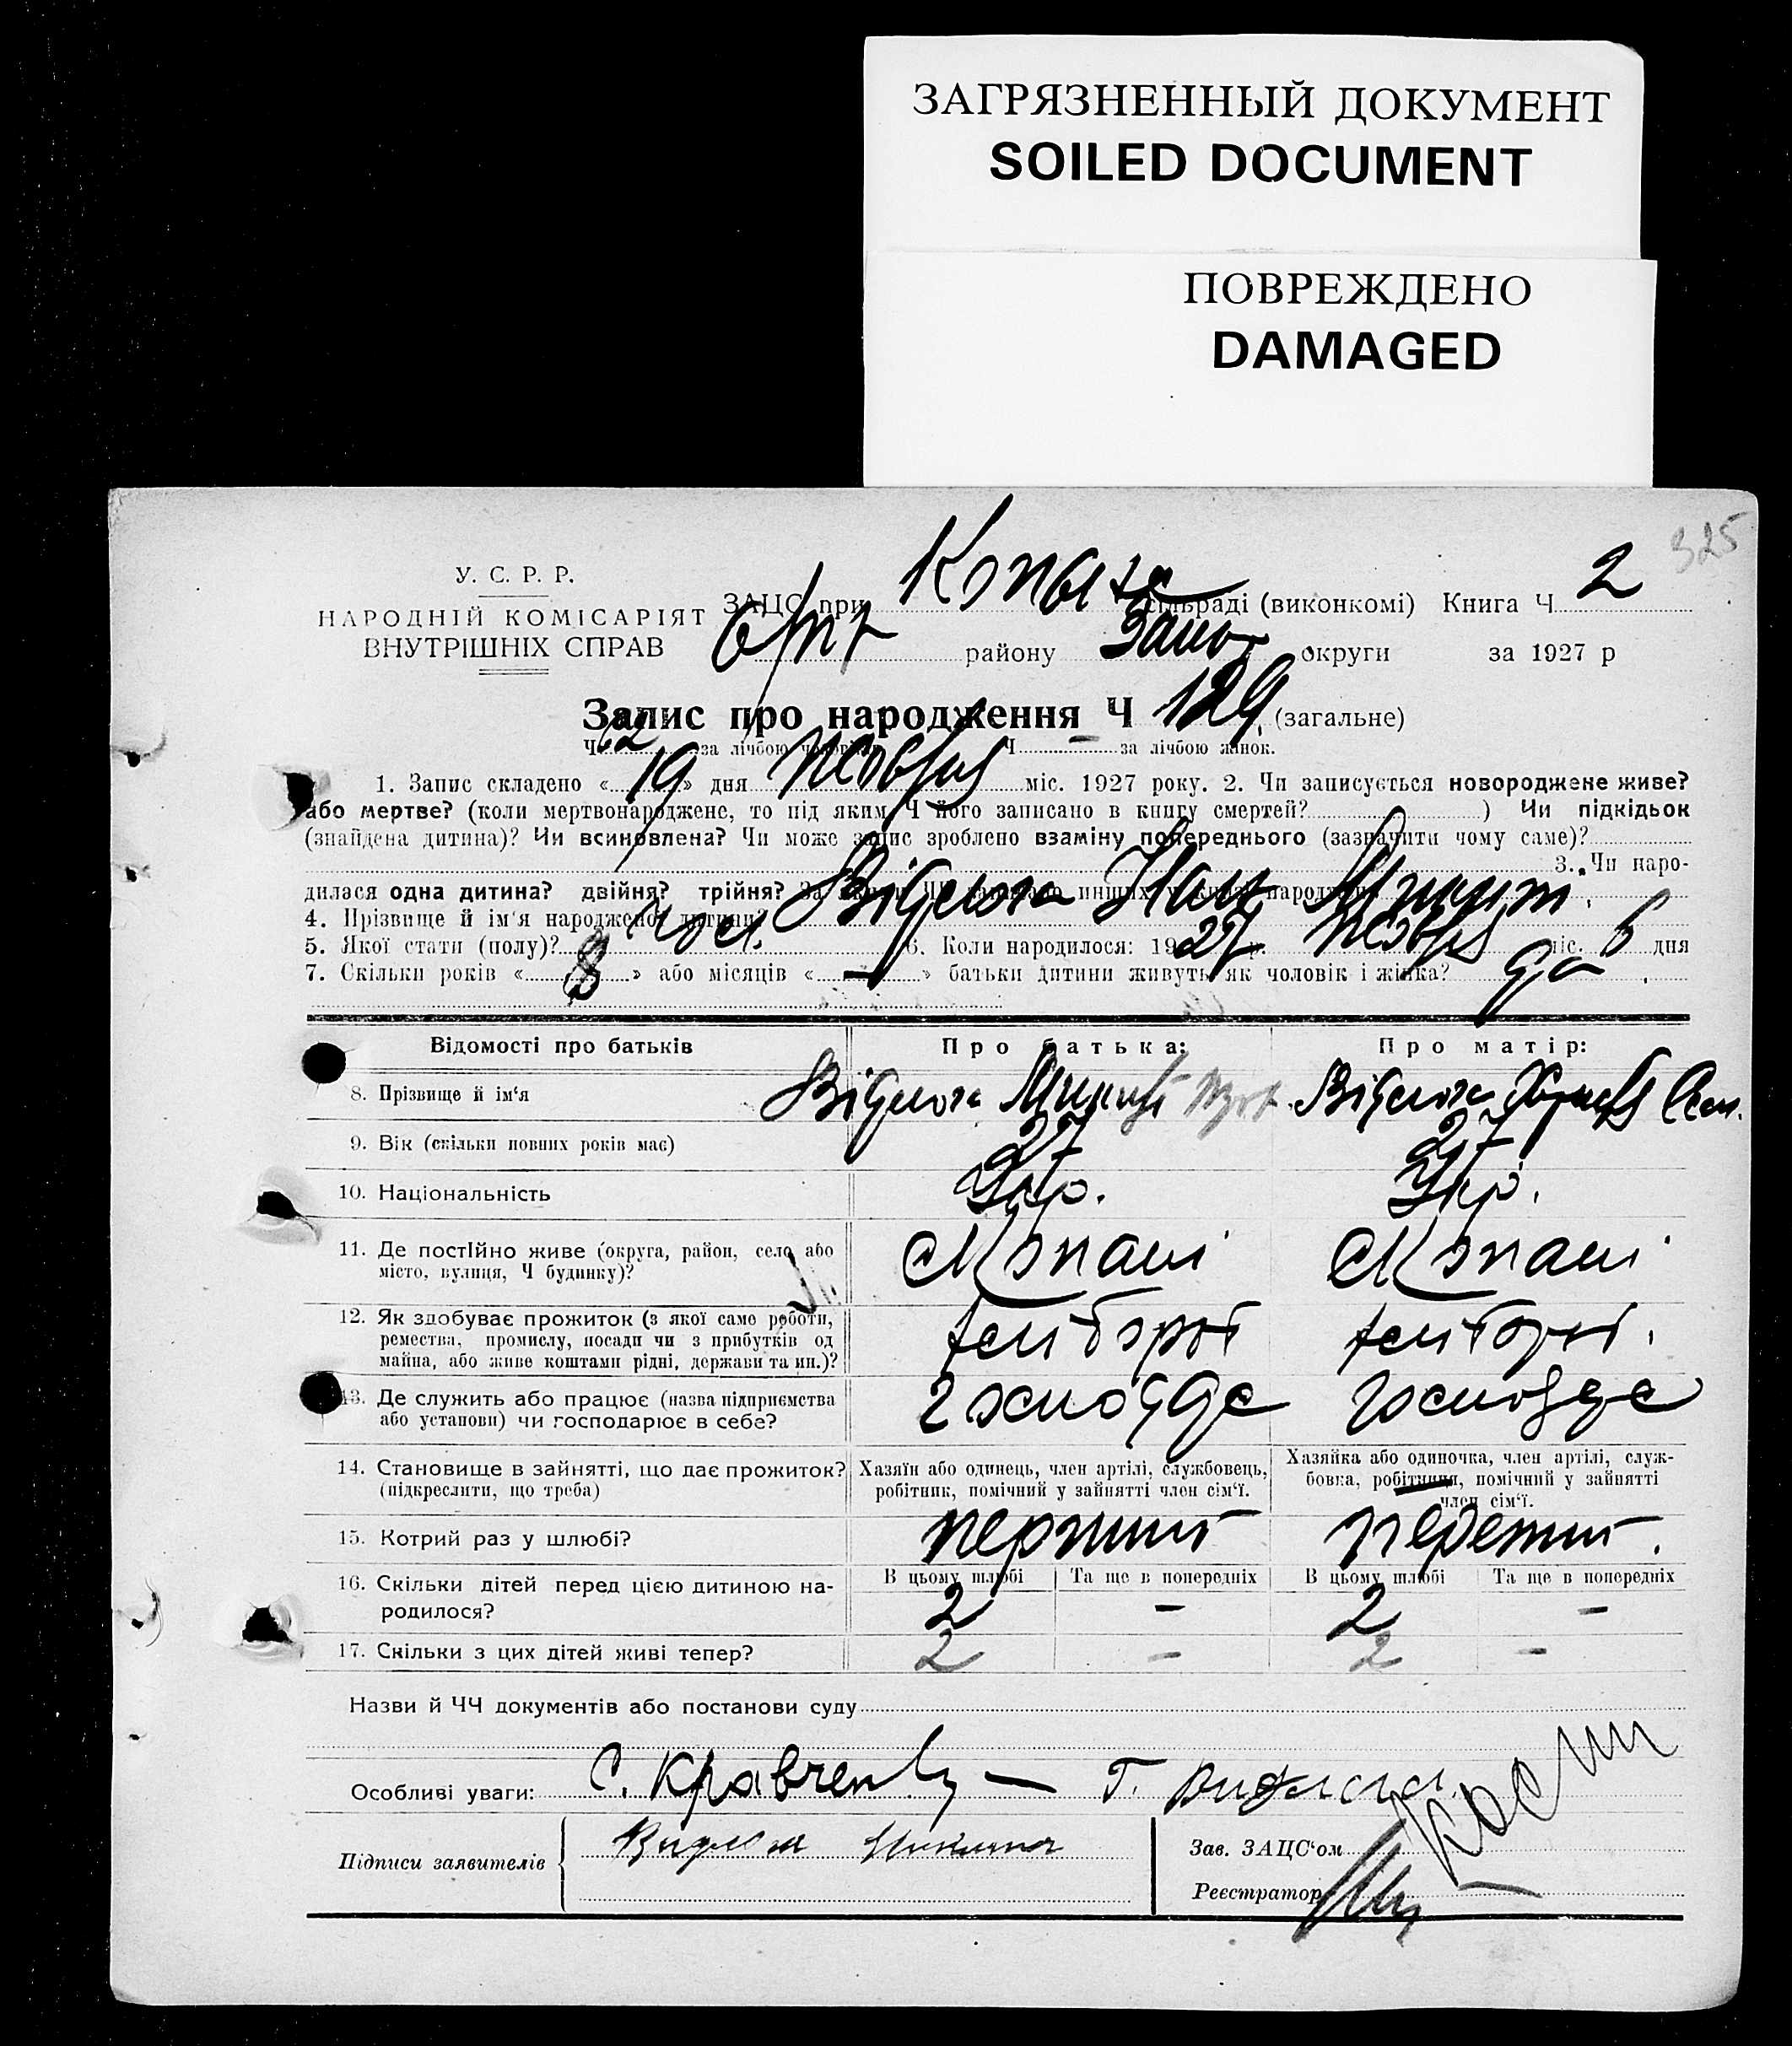 ЗАГРЯЗНЕННЫЙ ДОКУМЕНТ
SOILED DOCUMENT
ПОВРЕЖДЕНО
DAMAGED
325
У. С. Р. Р.
НАРОДНІЙ КОМІСАРІЯТ
ВНУТРІШНІХ СПРАВ
ЗАЦС при сільраді (виконкомі) Книга Ч 2
району Запор округи за 1927 р
Запис про народження Ч 129 (загальне)
Ч 62 за лічбою чоловіків Ч — за лічбою жінок.
1. Запис складено « 19 » дня Жовтня міс. 1927 року. 2. Чи записується новороджене живе?
або мертве? (коли мертвонароджене, то під яким Ч його записано в книгу смертей? ) Чи підкідьок
(знайдена дитина)? Чи всиновлена? Чи може запис зроблено взаміну попереднього (зазначити чому саме)?
3. Чи наро-
дилася одна дитина? двійня? трійня?
4. Прізвище й ім'я народженої дитини? Відмоха Іван Микит.
5. Якої стати (полу)? чол. 6. Коли народилося: 1927 р. Жовтня міс. 6 дня
7. Скільки років « 8 » або місяців « — » батьки дитини живуть як чоловік і жінка? да
Відомості про батьків Про батька: Про матір:
8. Прізвище й ім'я Відмоха Микита Відмоха
9. Вік (скільки повних років має) 27 27
10. Національність Укр. Укр.
11. Де постійно живе (округа, район, село або
місто, вулиця, Ч будинку)? с Копані с Копані
12. Як здобуває прожиток (з якої саме роботи,
ремества, промислу, посади чи з прибутків од
майна, або живе коштами рідні, держави та ин.)? хлібороб хлібороб.
13. Де служить або працює (назва підприємства
або установи) чи господарює в себе?
14. Становище в зайнятті, що дає прожиток?
(підкреслити, що треба)
Хазяїн або одинець, член артілі, службовець,
робітник, помічний у зайнятті член сім'ї.
Хазяйка або одиночка, член артілі, служ-
бовка, робітниця, помічний у зайнятті
член сім'ї.
15. Котрий раз у шлюбі? перший
16. Скільки дітей перед цією дитиною на-
родилося?
В цьому шлюбі Та ще в попередніх В цьому шлюбі Та ще в попередніх
2 — 2 —
17. Скільки з цих дітей живі тепер? 2 — 2 —
Назви й ЧЧ документів або постанови суду
Особливі уваги: С. Кравченко — Г.
Підписи заявителів
Зав. ЗАЦС'ом
Реєстратор